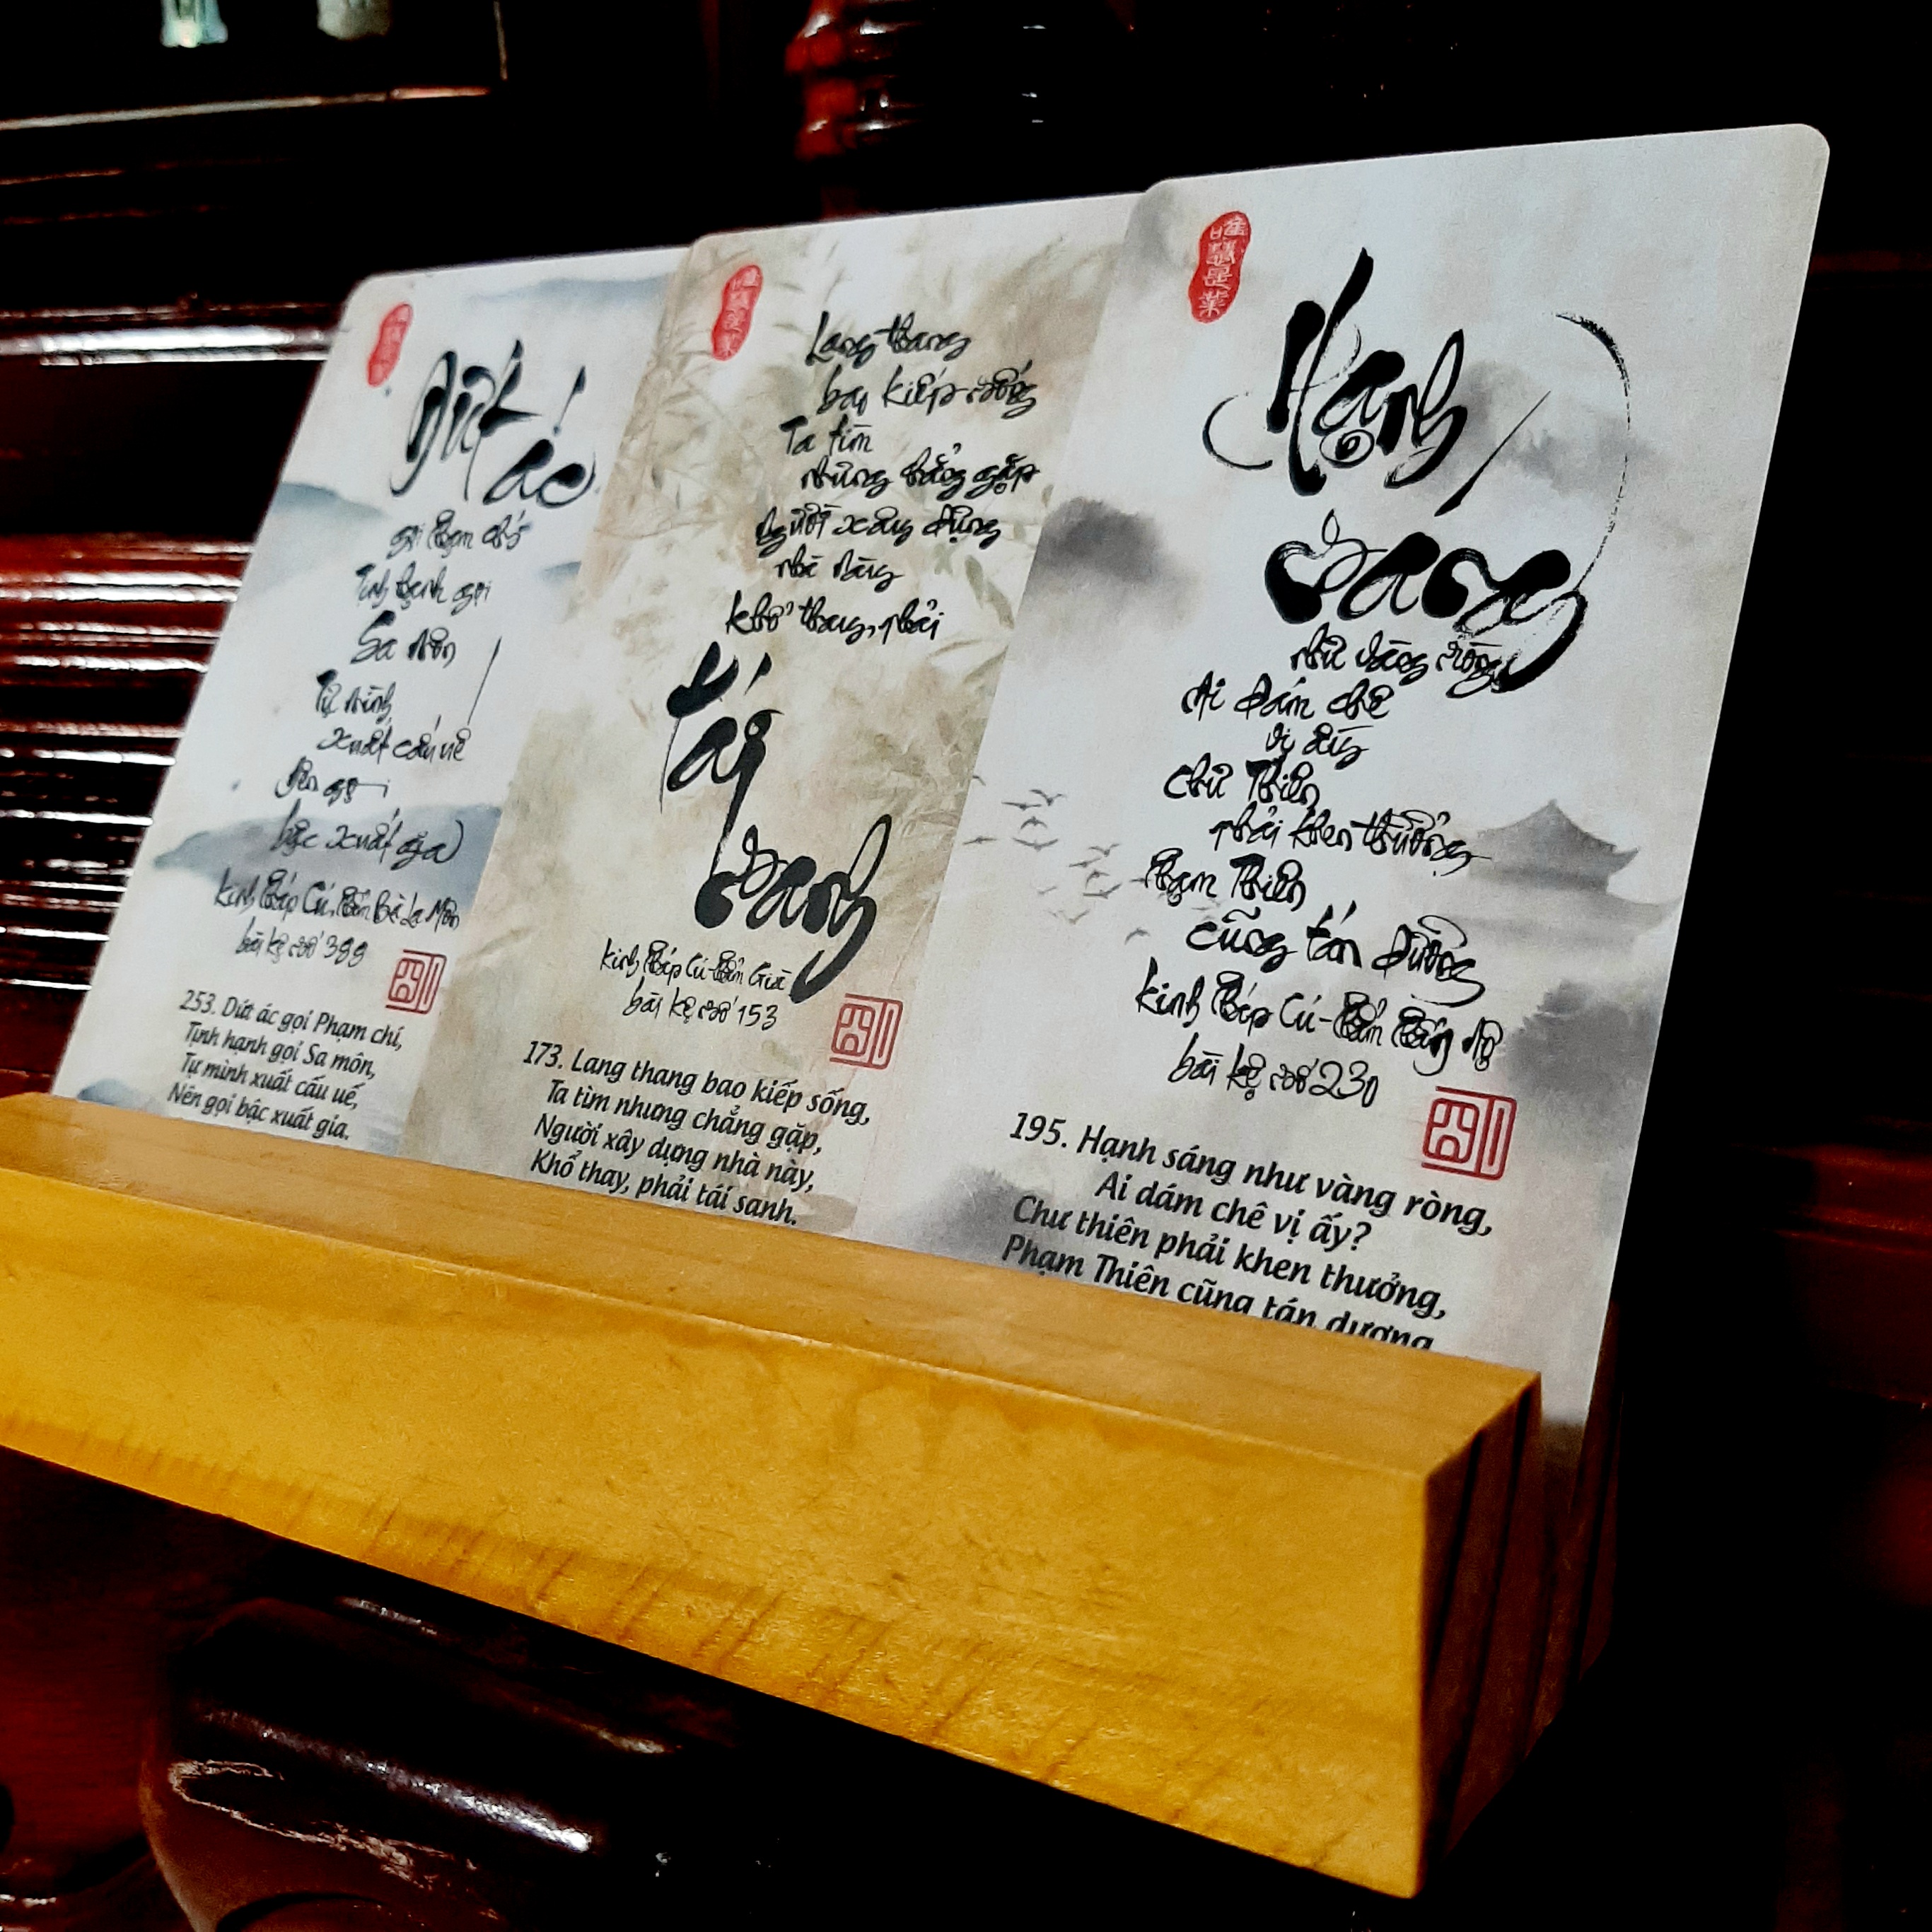 Dứt
ác
gọi Phạm chí
Tịnh hạnh gọi
Sa môn
Tự mình
xuất cấu uế
Nên gọi
bậc xuất gia
Kinh Pháp Cú, Phẩm Bà La Môn
bài kệ số 388
253. Dứt ác gọi Phạm chí,
Tịnh hạnh gọi Sa môn,
Tự mình xuất cấu uế,
Nên gọi bậc xuất gia.
Lang thang
bao kiếp sống
Ta tìm
nhưng chẳng gặp
Người xây dựng
nhà này
khổ thay, phải
tái
sanh
Kinh Pháp Cú - Phẩm Già
bài kệ số 153
173. Lang thang bao kiếp sống,
Ta tìm nhưng chẳng gặp,
Người xây dựng nhà này,
Khổ thay, phải tái sanh.
Hạnh
sáng
như vàng ròng
Ai dám chê
vị ấy
Chư Thiên
phải khen thưởng
Phạm Thiên
cũng tán dương
Kinh Pháp Cú - Phẩm Phẫn Nộ
bài kệ số 230
195. Hạnh sáng như vàng ròng,
Ai dám chê vị ấy?
Chư thiên phải khen thưởng,
Phạm Thiên cũng tán dương